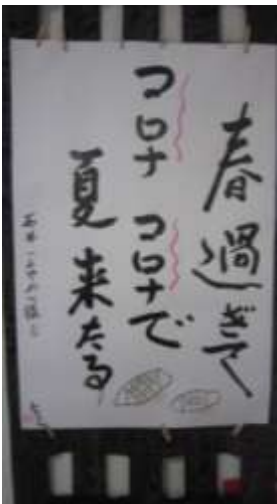 春過ぎて
コロナ コロナで
夏来たる